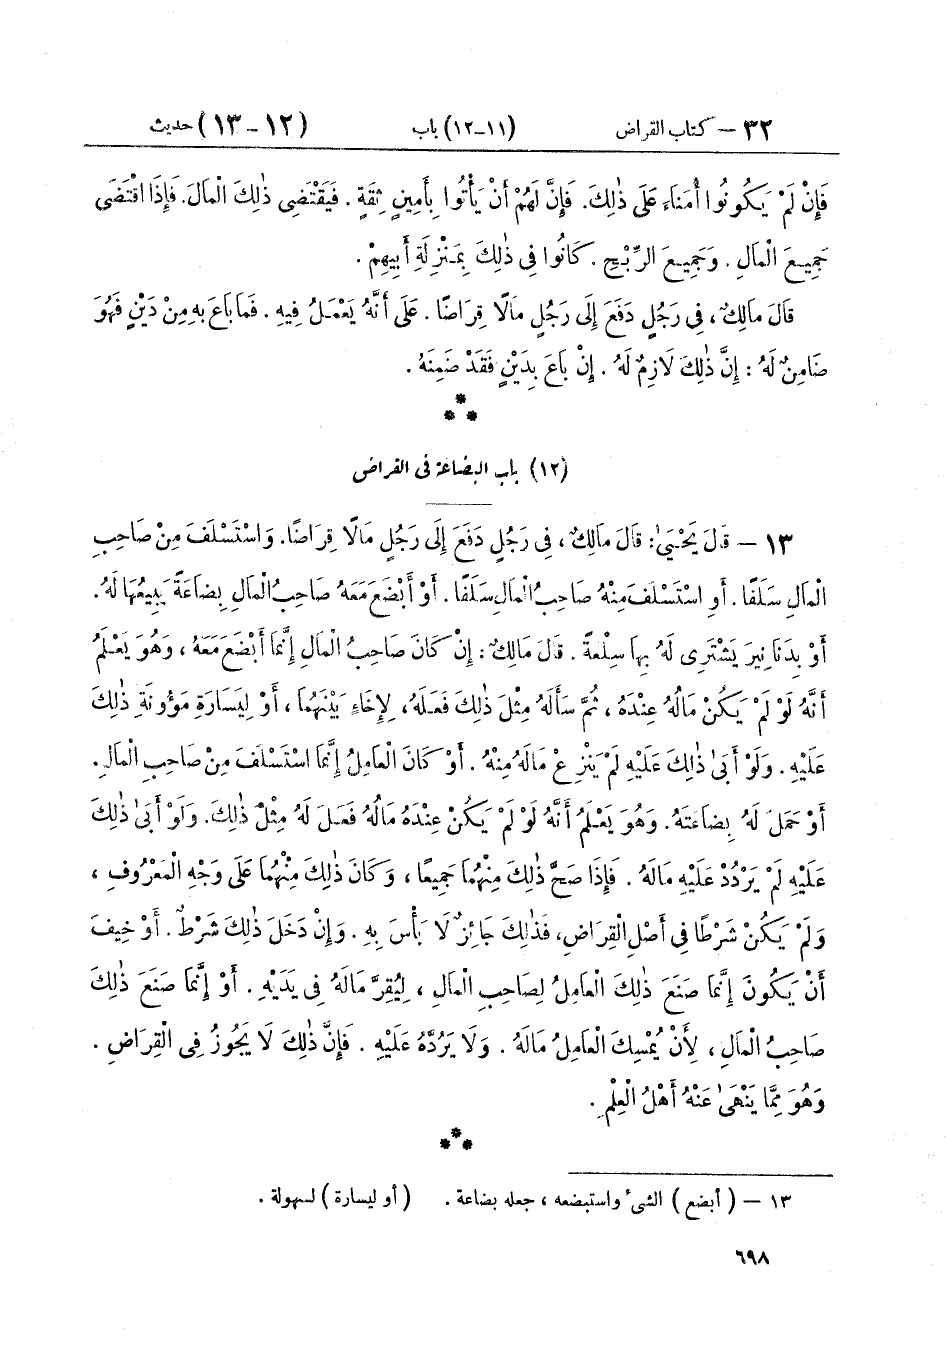 ٣٢ – كتاب القراض (١١-١٢) باب (١٢ - ١٣) حديث
فَإِنْ لَمْ يَكُونُوا أُمَنَاءَ عَلَى ذٰلِكَ. فَإِنَّ لَهُمْ أَنْ يَأْتُوا بِأَمِينٍ ثِقَةٍ . فَيَقْتَضِى ذٰلِكَ الْمَالَ. فَإِذَا اقْتَضَى
جَمِيعَ الْمَالِ . وَجَمِيعَ الرِّبْحِ . كَانُوا فِى ذٰلِكَ بِمَنْزِلَةِ أَبِيهِمْ .
قَالَ مَالِكٌ ، فِى رَجُلٍ دَفَعَ إِلَى رَجُلٍ مَالًا قِرَاضًا . عَلَى أَنَّهُ يَعْمَلُ فِيهِ . فَمَا بَاعَ بِهِ مِنْ دَيْنٍ فَهُوَ
ضَامِنٌ لَهُ : إِنَّ ذٰلِكَ لَازِمٌ لَهُ . إِنْ بَاعَ بِدَيْنٍ فَقَدْ ضَمِنَهُ .
***
(١٢) باب البضاعة فى القراض
١٣ – قَالَ يَحْيَىٰ: قَالَ مَالِكٌ ، فِى رَجُلٍ دَفَعَ إِلَى رَجُلٍ مَالًا قِرَاضًا. وَاسْتَسْلَفَ مِنْ صَاحِبِ
الْمَالِ سَلَفًا . أَوِ اسْتَسْلَفَ مِنْهُ صَاحِبُ الْمَالِ سَلَفًا . أَوْ أَبْضَعَ مَعَهُ صَاحِبُ الْمَالِ بِضَاعَةً يَبِيعُهَا لَهُ.
أَوْ بِدَنَانِيرَ يَشْتَرِى لَهُ بِهَا سِلْعَةً . قَالَ مَالِكٌ : إِنْ كَانَ صَاحِبُ الْمَالِ إِنَّمَا أَبْضَعَ مَعَهُ ، وَهُوَ يَعْلَمُ
أَنَّهُ لَوْ لَمْ يَكُنْ مَالُهُ عِنْدَهُ ، ثُمَّ سَأَلَهُ مِثْلَ ذٰلِكَ فَعَلَهُ، لِإِخَاءٍ بَيْنَهُمَا ، أَوْ لِيَسَارَةِ مَؤُونَةِ ذٰلِكَ
عَلَيْهِ . وَلَوْ أَبَىٰ ذٰلِكَ عَلَيْهِ لَمْ يَنْزِعْ مَالَهُ مِنْهُ . أَوْ كَانَ الْعَامِلُ إِنَّمَا اسْتَسْلَفَ مِنْ صَاحِبِ الْمَالِ.
أَوْ حَمَلَ لَهُ بِضَاعَتَهُ . وَهُوَ يَعْلَمُ أَنَّهُ لَوْ لَمْ يَكُنْ عِنْدَهُ مَالُهُ فَعَلَ لَهُ مِثْلَ ذٰلِكَ. وَلَوْ أَبَىٰ ذٰلِكَ
عَلَيْهِ لَمْ يَرْدُدْ عَلَيْهِ مَالَهُ . فَإِذَا صَحَّ ذٰلِكَ مِنْهُمَا جَمِيعًا ، وَكَانَ ذٰلِكَ مِنْهُمَا عَلَى وَجْهِ الْمَعْرُوفِ ،
وَلَمْ يَكُنْ شَرْطًا فِى أَصْلِ الْقِرَاضِ، فَذٰلِكَ جَائِزٌ لَا بَأْسَ بِهِ . وَإِنْ دَخَلَ ذٰلِكَ شَرْطٌ . أَوْ خِيفَ
أَنْ يَكُونَ إِنَّمَا صَنَعَ ذٰلِكَ الْعَامِلُ لِصَاحِبِ الْمَالِ ، لِيُقِرَّ مَالَهُ فِى يَدَيْهِ . أَوْ إِنَّمَا صَنَعَ ذٰلِكَ
صَاحِبُ الْمَالِ ، لِأَنْ يُمْسِكَ الْعَامِلُ مَالَهُ . وَلَا يَرُدَّهُ عَلَيْهِ . فَإِنَّ ذٰلِكَ لَا يَجُوزُ فِى الْقِرَاضِ .
وَهُوَ مِمَّا يَنْهَىٰ عَنْهُ أَهْلُ الْعِلْمِ .
***
١٣ – (أبضع) الشىء واستبضعه ، جعله بضاعة . (أو ليسارة) لسهولة .
٦٩٨